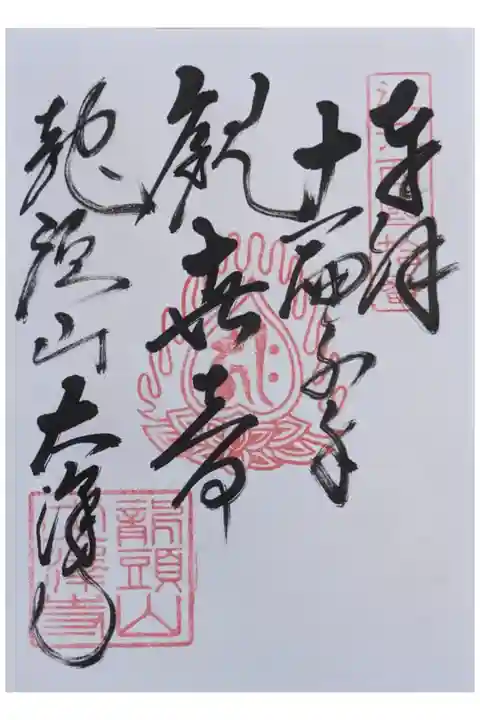 奉拝
十一面千手
観世音
龍頭山 大澤寺
龍頭山
大澤寺